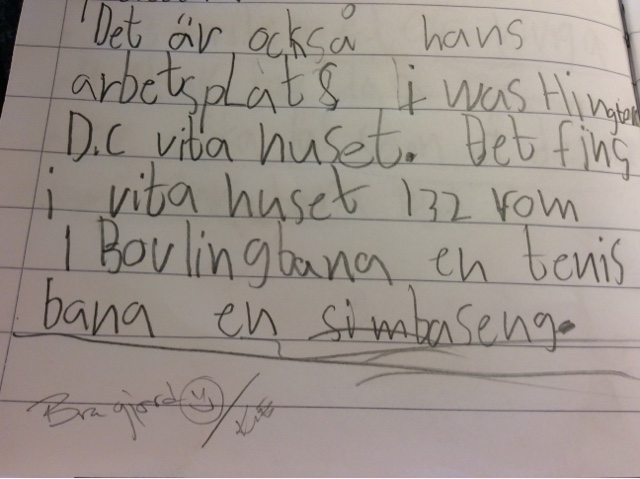 Det är också hans
arbetsplats i wasHington
D.C vita huset. Det fins
i vita huset 132 rom
1 Bovlingbana en tenis
bana en simbaseng.
Bra gjord